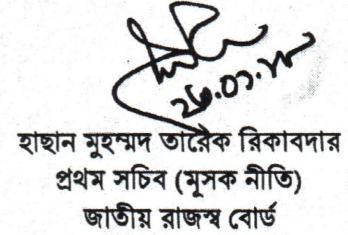 ২৬.০১.১৮
হাছান মুহম্মদ তারেক রিকাবদার
প্রথম সচিব (মূসক নীতি)
জাতীয় রাজস্ব বোর্ড